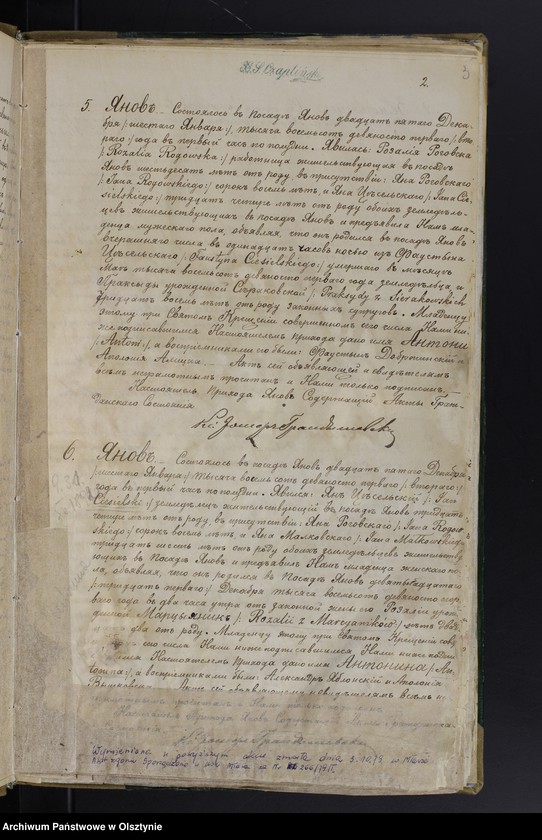 2.
3
5. Яновъ. Состоялось въ посадѣ Яновъ двадцать пятаго Дека-
бря /:шестаго Января:/ тысяча восемьсотъ девяносто перваго /:вто
раго:/ года въ первый часъ по полудни. Явилась: Розалія Роговска
/:Rozalia Rogowska:/ работница жительствующая въ посадѣ
Яновъ шестьдесятъ лѣтъ отъ роду, въ присутствіи: Яна Роговскаго
/:Jana Rogowskiego:/ сорокъ восемь лѣтъ, и Яна Цѣсельскаго /:Jana Cie-
sielskiego:/ тридцать четыре лѣтъ отъ роду обоихъ земледѣль-
цевъ жительствующихъ въ посадѣ Яновъ и предъявила Намъ мла-
денца мужескаго пола, объявляя, что онъ родился въ посадѣ Яновъ
вчерашняго числа въ одинадцать часовъ ночью изъ Фаустына
Цѣсельскаго /:Faustyna Ciesielskiego:/ умершаго въ мѣсяцѣ
Маѣ тысяча восемьсотъ девяносто перваго года земледѣльца и
Праксиды урожденной Сѣраковской /:Praksydy z Sierakowskich:/
тридцать восемь лѣтъ отъ роду законныхъ супруговъ. Младенцу
этому при Святомъ Крещеніи совершенномъ сего числа Нами ни-
же подписавшимся Настоятелемъ прихода дано имя Антони
/:Antoni:/, а воспріемниками его были: Фаустынъ
Аполонія. Актъ сей объявляющей и свидѣтелямъ
всѣмъ неграмотнымъ прочитанъ и Нами только подписанъ.
Настоятель Прихода Яновъ Содержащій Акты Граж-
данскаго Состоянія
6. Яновъ. Состоялось въ посадѣ Яновъ двадцать пятаго Декабря
/:шестаго Января:/ тысяча восемьсотъ девяносто перваго /:втораго:/
года въ первый часъ по полудни. Явился: Янъ Цѣсельскій /:Jan
Ciesielski:/ земледѣлецъ жительствующій въ посадѣ Яновъ тридцать
четыре лѣтъ отъ роду, въ присутствіи: Яна Роговскаго /:Jana Rogow-
skiego:/ сорокъ восемь лѣтъ, и Яна Малковскаго /:Jana Małkowskiego:/
тридцать шесть лѣтъ отъ роду обоихъ земледѣльцевъ жительству-
ющихъ въ посадѣ Яновъ и предъявилъ Намъ младенца женскаго по-
ла, объявляя, что онъ родился въ посадѣ Яновъ девятнадцатаго
/:тридцать перваго:/ Декабря тысяча восемьсотъ девяносто пер-
ваго года въ два часа утра отъ законной жены его Розаліи урож-
денной Марцыяникъ /:Rozalii z
два отъ роду. Младенцу этому при Святомъ Крещеніи совер
сего числа Нами нижеподписавшимся
Настоятелемъ Прихода дано имя Антонина /:An-
tonina:/, а воспріемниками были: Александръ Яблонскій и Аполонія
Актъ сей объявляющему и свидѣтелямъ всѣмъ не
Нами только
Настоятель Прихода Яновъ
dnia 3.10.74 w
Archiwum Państwowe w Olsztynie